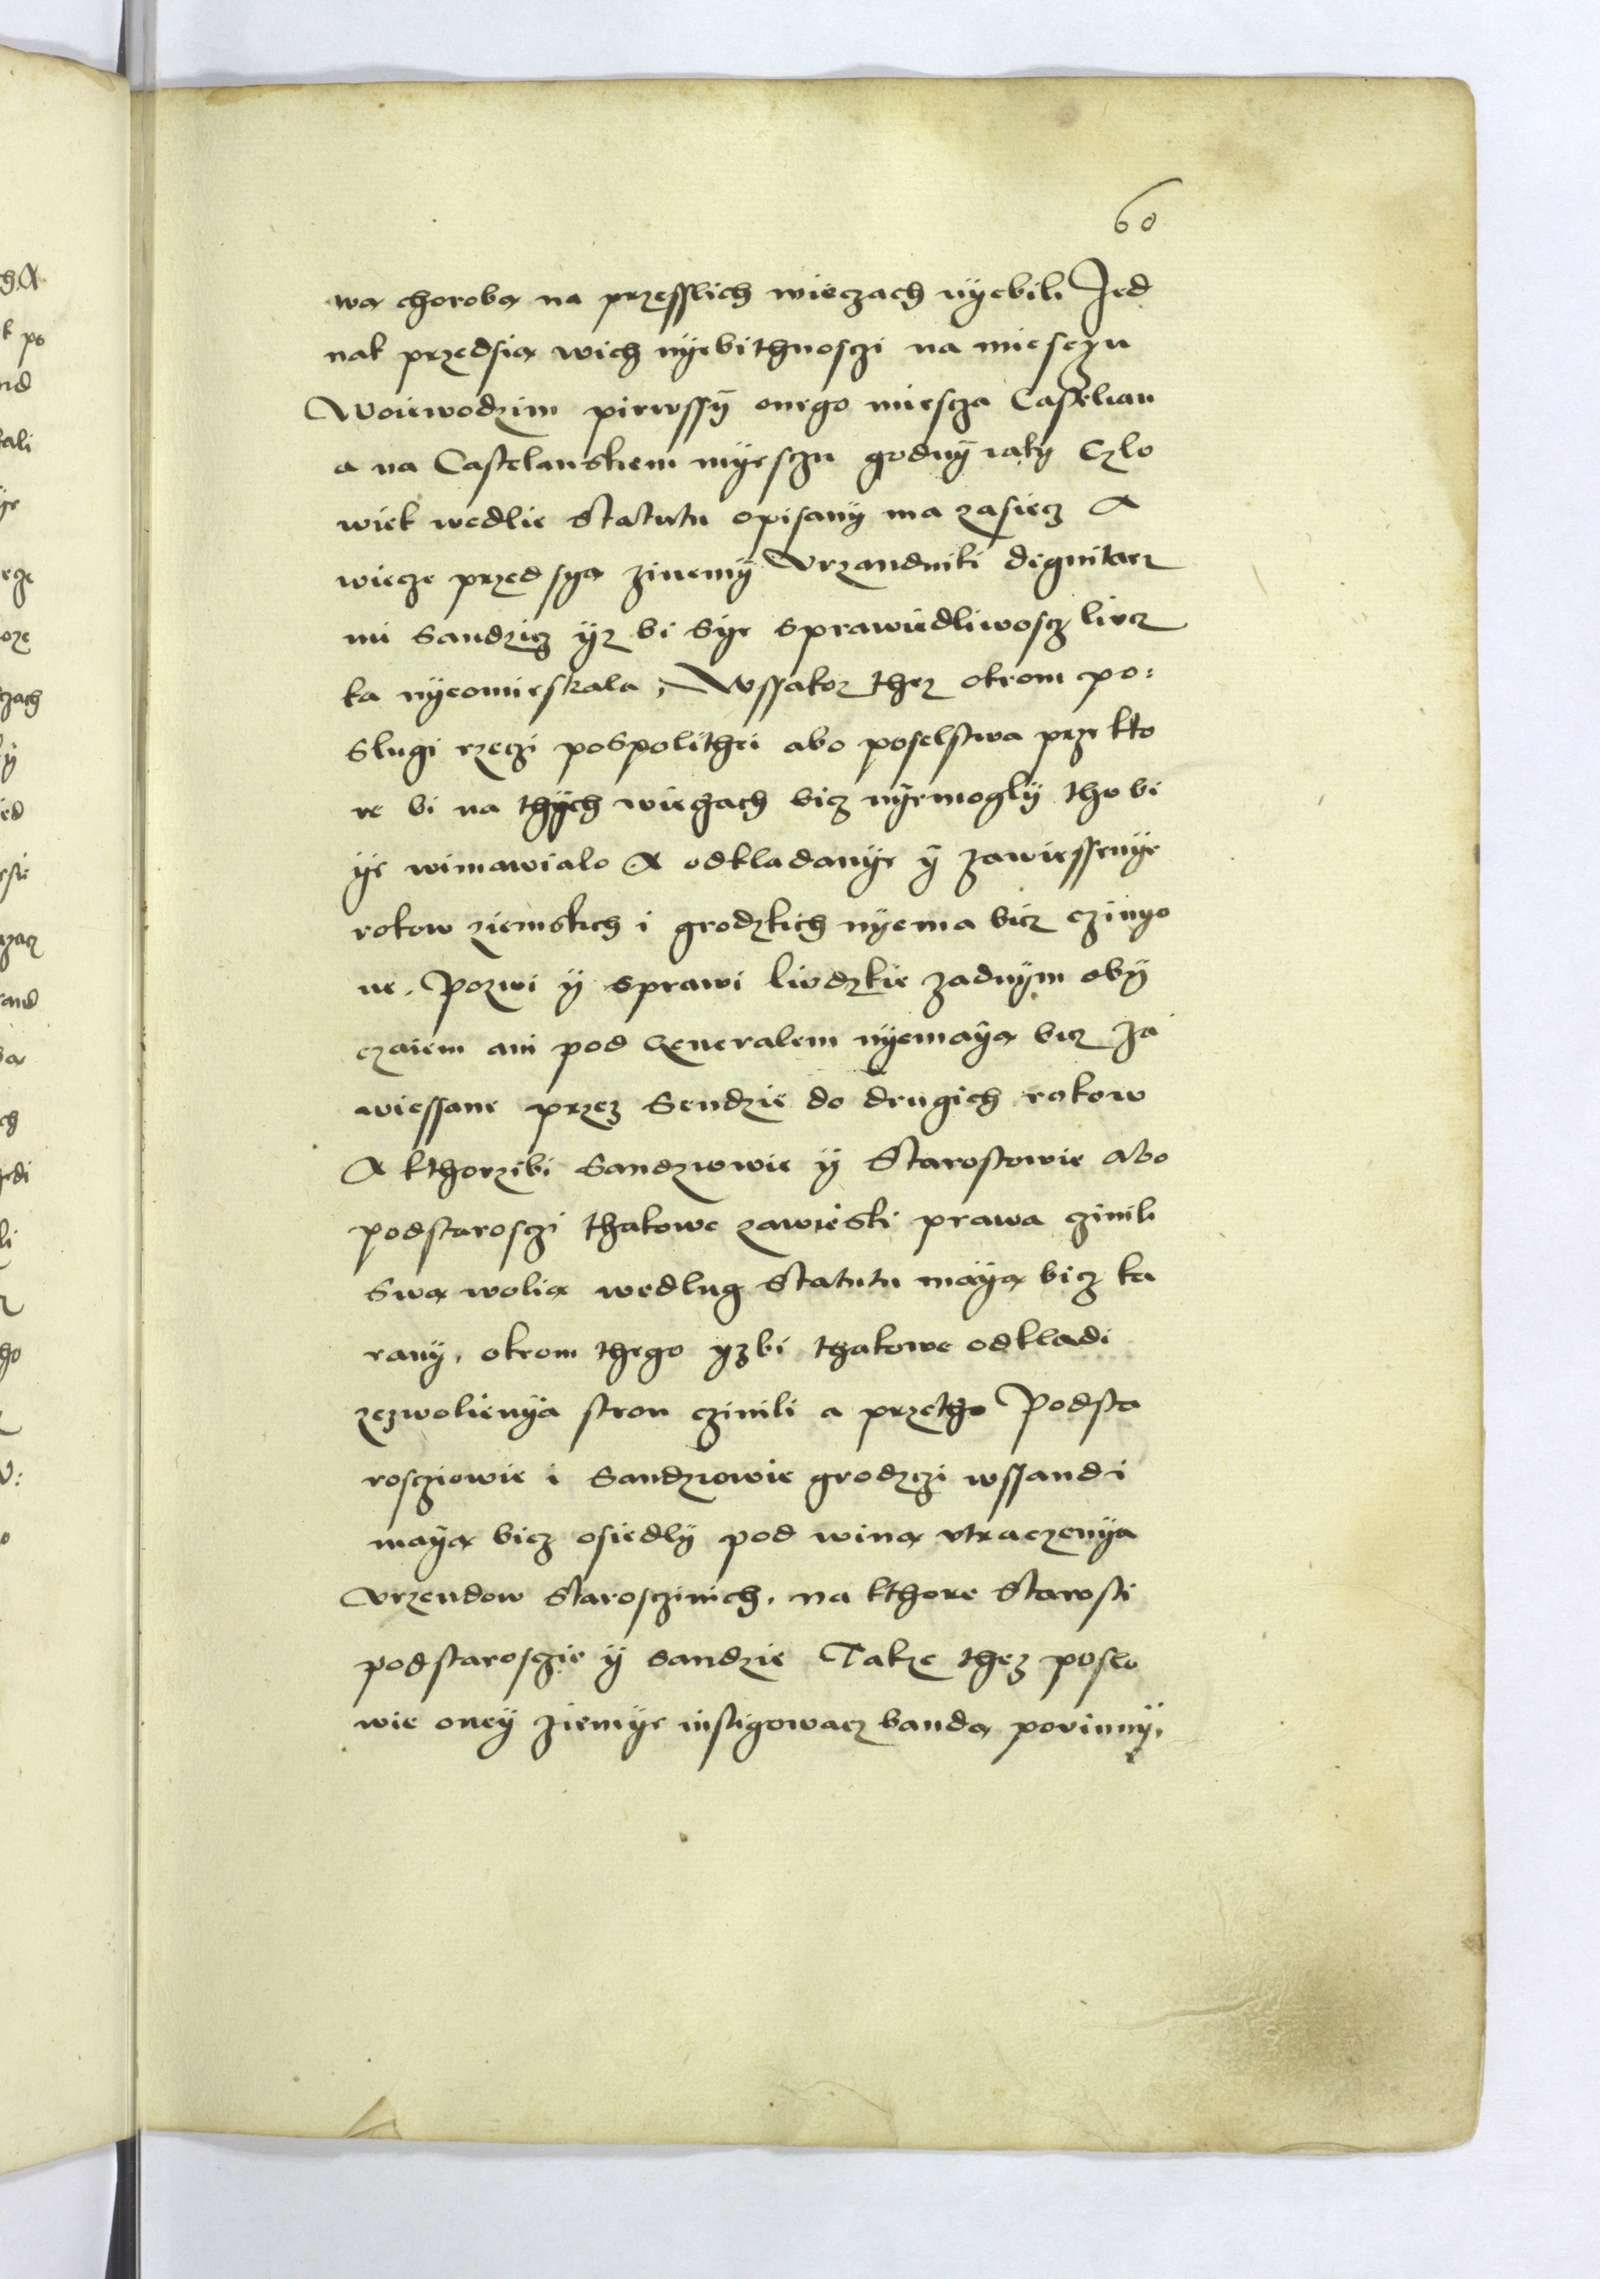 60
wą chorobą na przesslich wieczach nyebili Jed
nak przedsią wich nyebithnosczi na miesczu
Woiewodzim pierwssy onego miescza Castelian
a na Castelanskiem myesczu godny iaky Czlo
wiek wedlie Statutu opisany ma zasiecz A
wiecze przed syą zinemy Vrzandniki dignitarz
mi Sandzicz yz bi Sye Sprawiedliwoscz liucz
ka nyeomieskala, Wssakoz thez okrom po:
Slugi rzeczi poSpolithei abo poselstwa prze kto
re bi na thych wieczach bicz nyemogly tho bi
ye wimawialo A odkladanye y zawiessenye
rokow ziemskich i grodzkich nyema bicz czinyo
ne. Pozwi y sprawi liudzkie zadnym oby
czaiem ani pod Generalem nyemayą bicz za
wiessane przez Sendzie do drugich rokow
A kthorzibi Sandziowie y Starostowie Abo
podstarosczi thakowe zawieski prawa czinili
Swą wolią wedlug Statutu mayą bicz ka
rany, okrom thego yzbi thakowe odkladi
zezwolienya stron czinili a przetho Podsta
rosciowie i Sandziowie grodzczi wssandi
mayą bicz osiedly pod winą vtraczenya
Vrzendow Starosczinich, na kthore Starosti
podstarosczie y Sandzie Takze thez poslo
wie oney ziemye instigowacz bandą powinny,